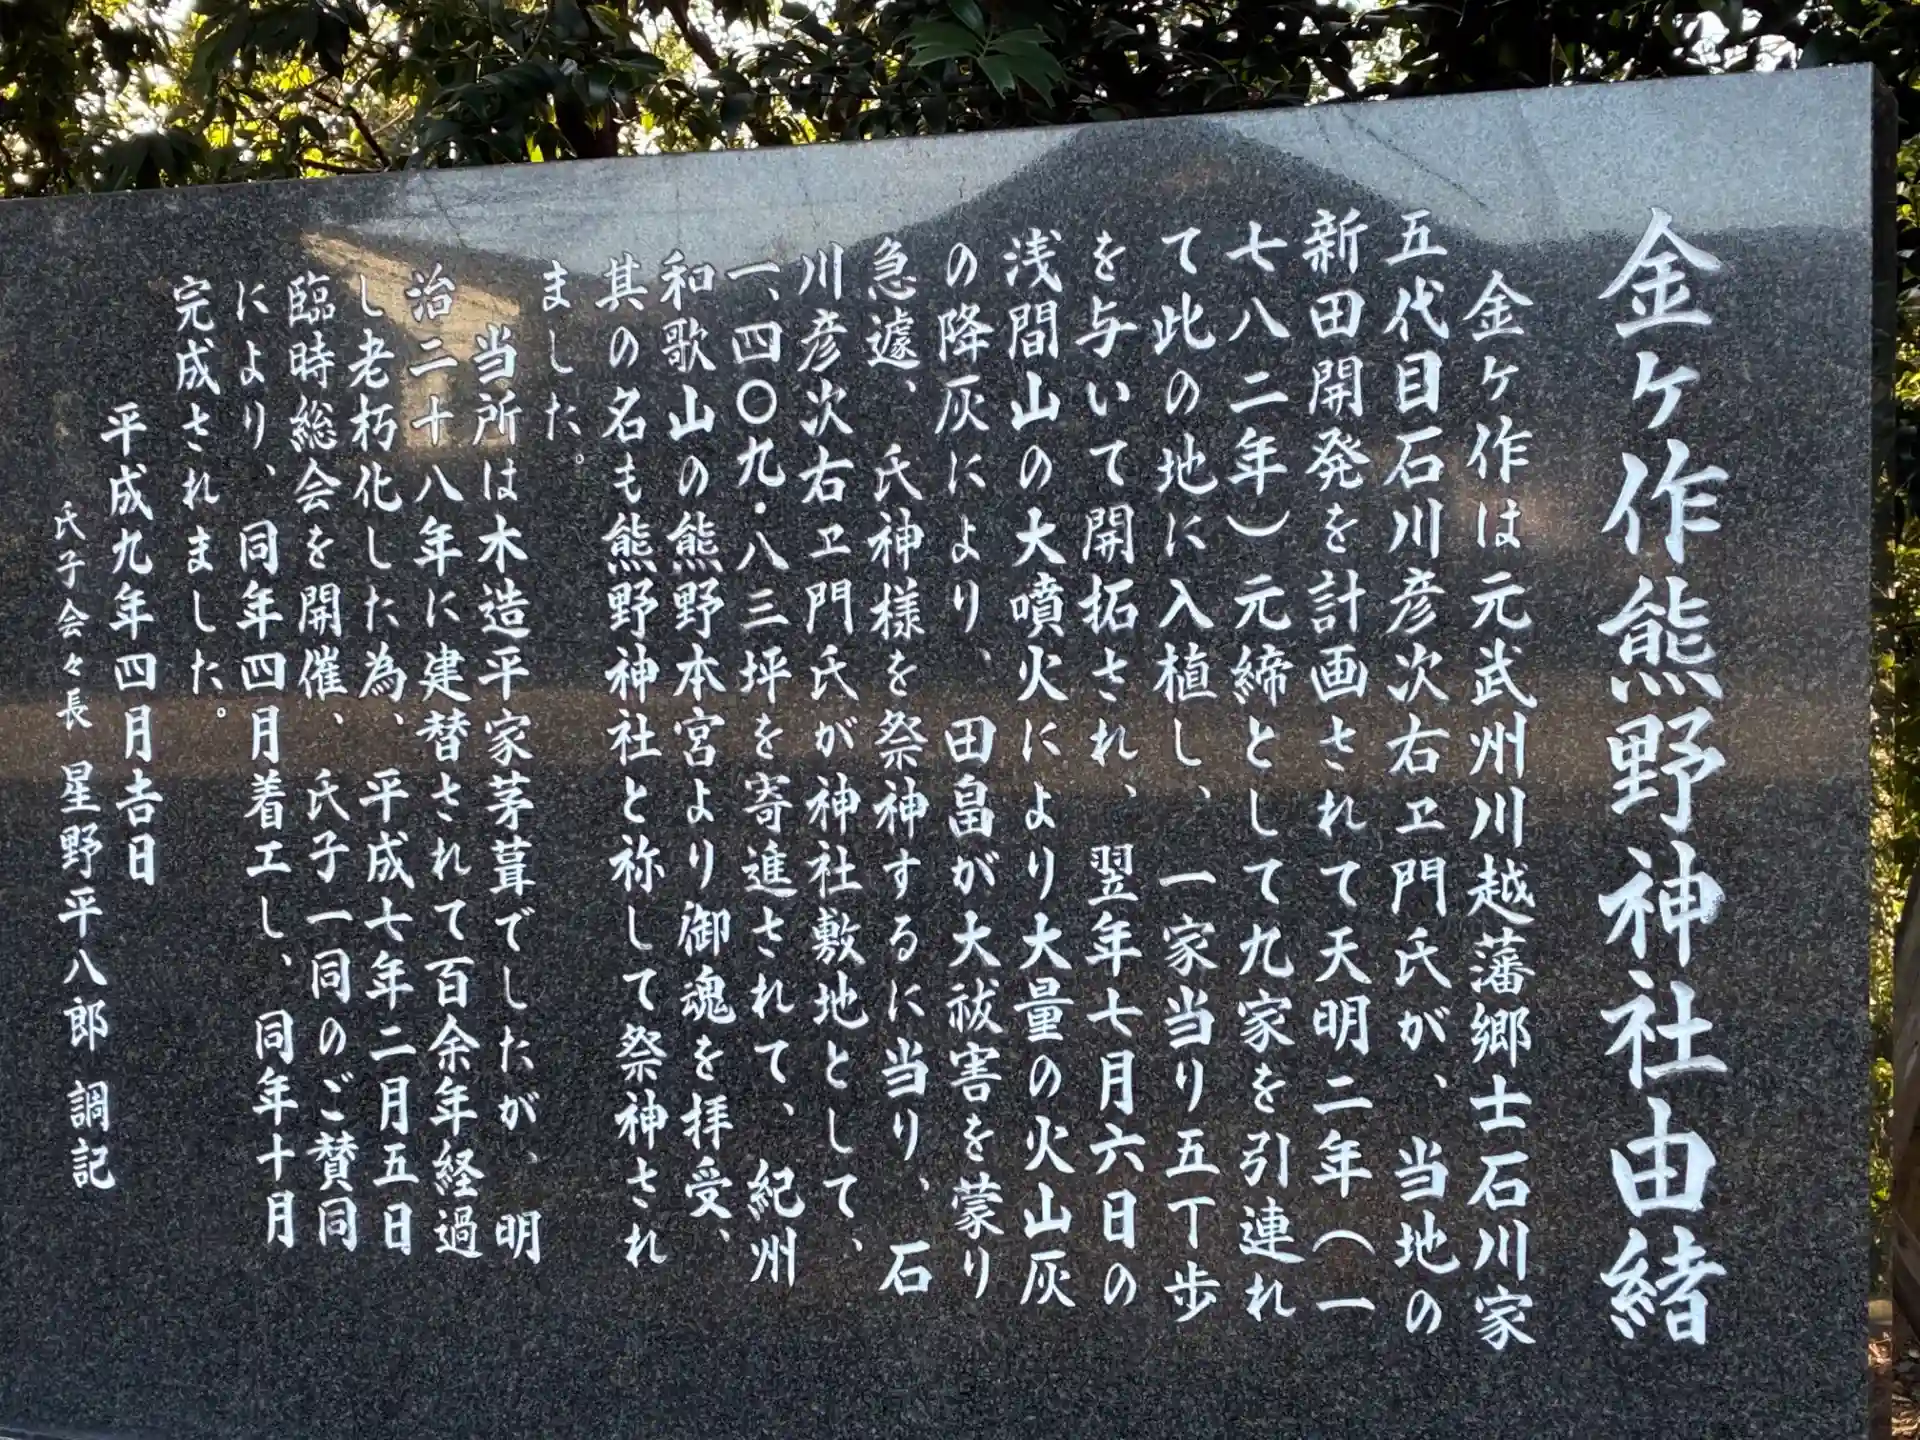 金ヶ作熊野神社由緒
金ヶ作は元武州川越藩郷士石川家
五代目石川彦次右ヱ門氏が、当地の
新田開発を計画されて天明二年（一
七八二年）元締として九家を引連れ
て此の地に入植し、一家当り五丁歩
を与いて開拓され、翌年七月六日の
浅間山の大噴火により大量の火山灰
の降灰により、田畠が大祓害を蒙り
急遽、氏神様を祭神するに当り、石
川彦次右ヱ門氏が神社敷地として、
一、四〇九・八三坪を寄進されて、紀州
和歌山の熊野本宮より御魂を拝受、
其の名も熊野神社と祢して祭神され
ました。
当所は木造平家茅葺でしたが、明
治二十八年に建替されて百余年経過
し老朽化した為、平成七年二月五日
臨時総会を開催、氏子一同のご賛同
により、同年四月着工し、同年十月
完成されました。
平成九年四月吉日
氏子会々長 星野平八郎 調記